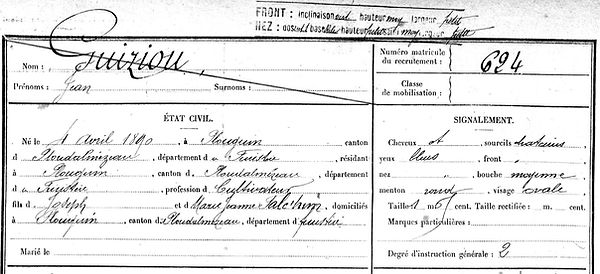 FRONT : inclinaison hauteur moy largeur petit
NEZ : dos base hauteur
Nom : Guiziou
Prénoms : Jean Surnoms :
Numéro matricule
du recrutement : 624
Classe
de mobilisation :
ÉTAT CIVIL.
Né le 4 Avril 1890, à Plouguin canton
d Ploudalmézeau, département du Finistère, résidant
à Plouguin, canton d. Ploudalmézeau, département
d Finistère, profession d Cultivateur
fils d Joseph et d Marie Jeanne, domiciliés
à Plouguin, canton de Ploudalmézeau, département d finistère
Marié le
SIGNALEMENT.
Cheveux et sourcils chatains
yeux bleus front
nez bouche moyenne
menton rond visage ovale
Taille : 1 m. 65 cent. Taille rectifiée : m. cent.
Marques particulières :
Degré d'instruction générale : 2